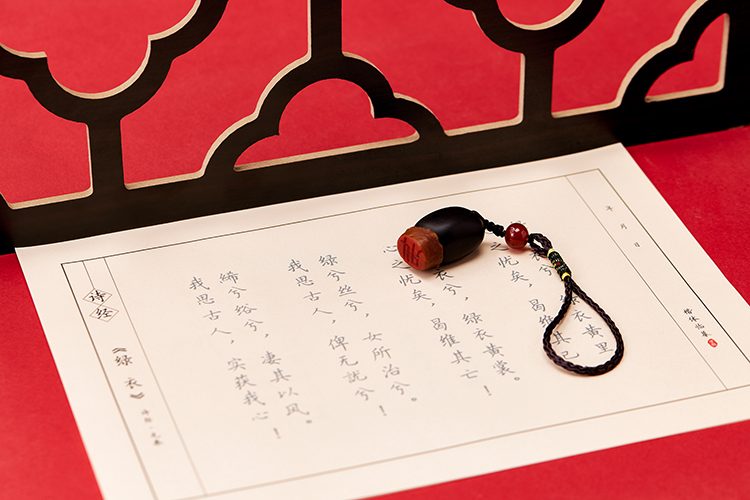 年 月 日
衣黄里
之忧矣，曷维其已
衣兮，绿衣黄裳。
心之忧矣，曷维其亡！
绿兮丝兮，女所治兮。
我思古人，俾无訧兮！
绤兮，凄其以风。
我思古人，实获我心！
诗经
《绿衣》